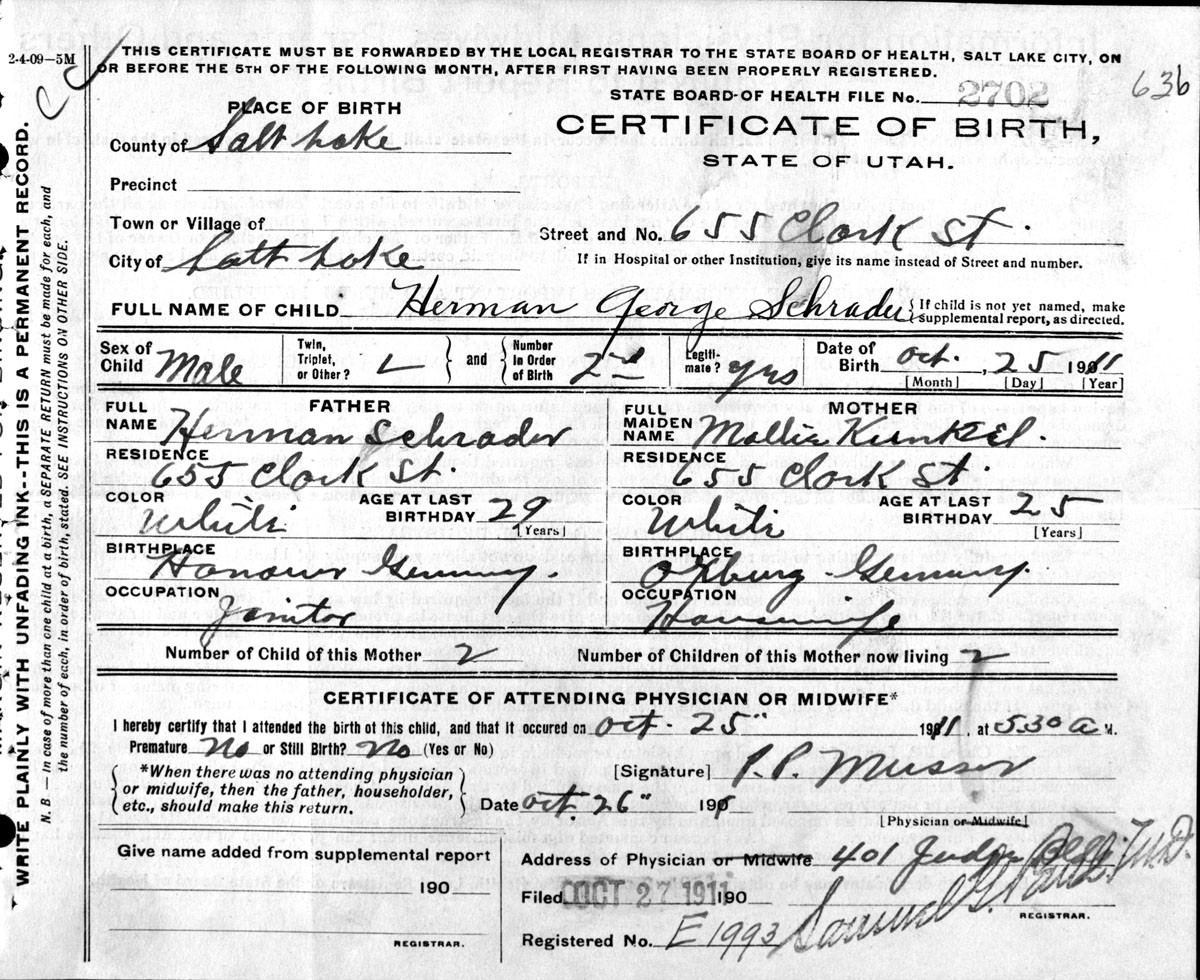 2-4-09—5M
THIS CERTIFICATE MUST BE FORWARDED BY THE LOCAL REGISTRAR TO THE STATE BOARD OF HEALTH, SALT LAKE CITY, ON
OR BEFORE THE 5TH OF THE FOLLOWING MONTH, AFTER FIRST HAVING BEEN PROPERLY REGISTERED.
636
STATE BOARD OF HEALTH FILE No. 2702
PLACE OF BIRTH
CERTIFICATE OF BIRTH,
STATE OF UTAH.
County of Salt Lake
Precinct
Town or Village of
Street and No. 655 Clark St.
City of Salt Lake
If in Hospital or other Institution, give its name instead of Street and number.
FULL NAME OF CHILD Herman George Schrader {If child is not yet named, make
supplemental report, as directed.
Sex of Child Male
Twin, Triplet, or Other?
and
Number in Order of Birth 2nd
Legiti-mate? yes
Date of Birth Oct. , 25 1911
[Month] [Day] [Year]
FATHER
FULL NAME Herman Schrader
RESIDENCE
655 Clark St.
COLOR White
AGE AT LAST BIRTHDAY 29
[Years]
BIRTHPLACE
Germany.
OCCUPATION
Janitor
MOTHER
FULL MAIDEN NAME Mollie Kunkel.
RESIDENCE
655 Clark St.
COLOR White
AGE AT LAST BIRTHDAY 25
[Years]
BIRTHPLACE
Germany.
OCCUPATION
Housewife
Number of Child of this Mother 2 Number of Children of this Mother now living 2
CERTIFICATE OF ATTENDING PHYSICIAN OR MIDWIFE*
I hereby certify that I attended the birth of this child, and that it occured on Oct. 25" 1911, at 5.30 a M.
Premature No or Still Birth? No (Yes or No)
*When there was no attending physician
or midwife, then the father, householder,
etc., should make this return.
[Signature] P.P. Musser
Date Oct. 26" 191
[Physician or Midwife]
Give name added from supplemental report
190
REGISTRAR.
Address of Physician or Midwife 401 Judge Bldg.
Filed OCT 27 1911 190
Samuel G. M.D.
REGISTRAR.
Registered No. E 1993
WRITE PLAINLY WITH UNFADING INK--THIS IS A PERMANENT RECORD.
N. B.—In case of more than one child at a birth, a SEPARATE RETURN must be made for each, and
the number of each, in order of birth, stated. SEE INSTRUCTIONS ON OTHER SIDE.